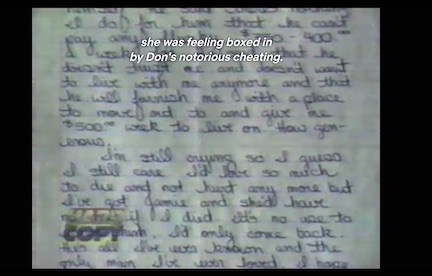 himself. He said there's nothing
I do for him that he can't
pay any
she was feeling boxed in
by Don's notorious cheating.
a week
that he
doesn't trust me and doesn't want
to live with me anymore and that
he will furnish me with a place
to move out to and give me
$500.00 week to live on - How gen-
erous.
I'm still crying so I guess
I still care I'd love so much
to die and not hurt any more but
I've got Jamie and she'd have
if I died It's no use to
HARD
COPY
I'd only come back.
this all I've ever known and the
only man I've ever loved. I hope